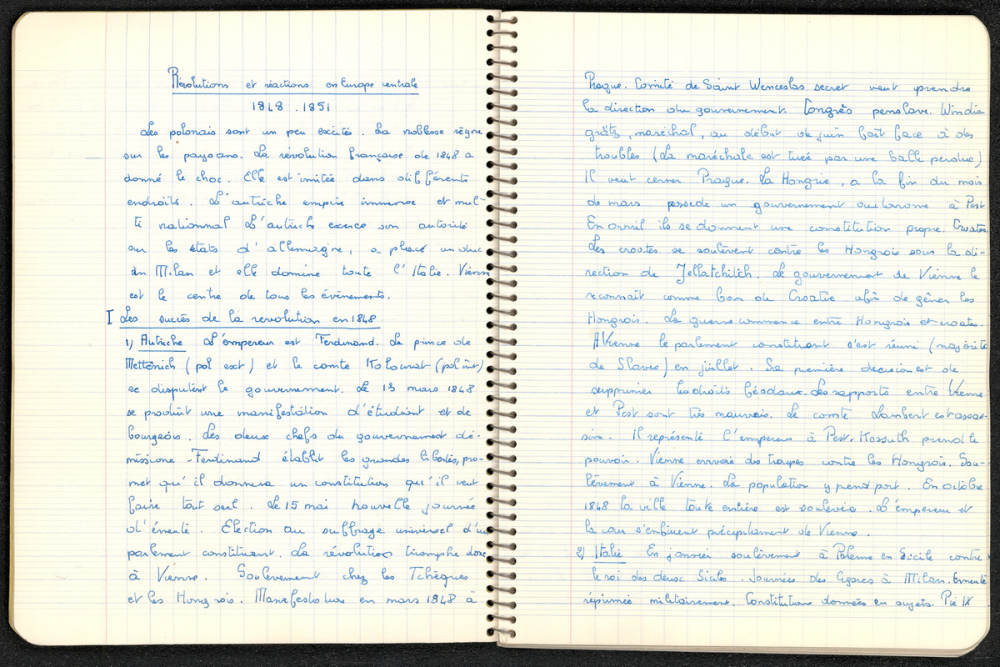 Révolutions et réactions en Europe centrale
1848.1851
Les polonais sont un peu excités. La noblesse règne
sur les paysans. La révolution française de 1848 a
donné le choc. Elle est imitée dans différents
endroits. L'autriche empire immense et mul-
ti nationnal L'autriche exerce son autorité
sur les états d'allemagne, a placé un duc
à Milan et elle domine toute l'Italie. Vienne
est le centre de tous les événements.
I Les succès de la revolution en 1848
1) Autriche L'empereur est Ferdinand. Le prince de
Metternich (pol ext) et le comte Kolowrat (pol int)
se disputent le gouvernement. Le 13 mars 1848
se produit une manifestation d'étudiant et de
bourgeois. Les deux chefs du gouvernement dé-
missione - Ferdinand établit les grandes libertés, pro-
met qu'il donnera un constitution qu'il veut
faire tout seul. Le 15 mai nouvelle journée
d'émeute. Election au suffrage universel d'un
parlement constituant. La révolution triomphe donc
à Vienne. Soulevement chez les Tchèques
et les Hongrois. Manifestation en mars 1848 à
Prague. Comité de Saint Wenceslas secret veut prendre
la direction du gouvernement. Congrès panslave. Windis
grätz, maréchal, au début de juin fait face à des
troubles (La maréchale est tuée par une balle perdue)
Il veut cerner Prague. La Hongrie, a la fin du mois
de mars possède un gouvernement autonome à Pest
En avril ils se donnent une constitution propre. Croates
Les croates se soulèvent contre les Hongrois sous la di-
rection de Jellatchitch. Le gouvernement de Vienne le
reconnaît comme ban de Croatie afin de gêner les
Hongrois. La guerre commence entre Hongrois et croates.
A Vienne le parlement constituant s'est réuni (majorité
de Slaves) en juillet. Sa première decision est de
supprimer les droits féodaux. Les rapports entre Vienne
et Pest sont très mauvais. Le comte Lambert est assas-
siné. Il représenté l'empereur à Pest. Kossuth prend le
pouvoir. Vienne envoie des troupes contre les Hongrois. Sou-
lèvement à Vienne. La population y prend part. En octobre
1848 la ville toute entière est soulevée. L'empereur et
la cour s'enfuient précipitament de Vienne.
2) Italie En janvier soulèvement à Palerme en Sicile contre
le roi des deux Siciles. Journées des cigares à Milan. Emeute
réprimée militairement. Constitutions données en sujets. Pie IX